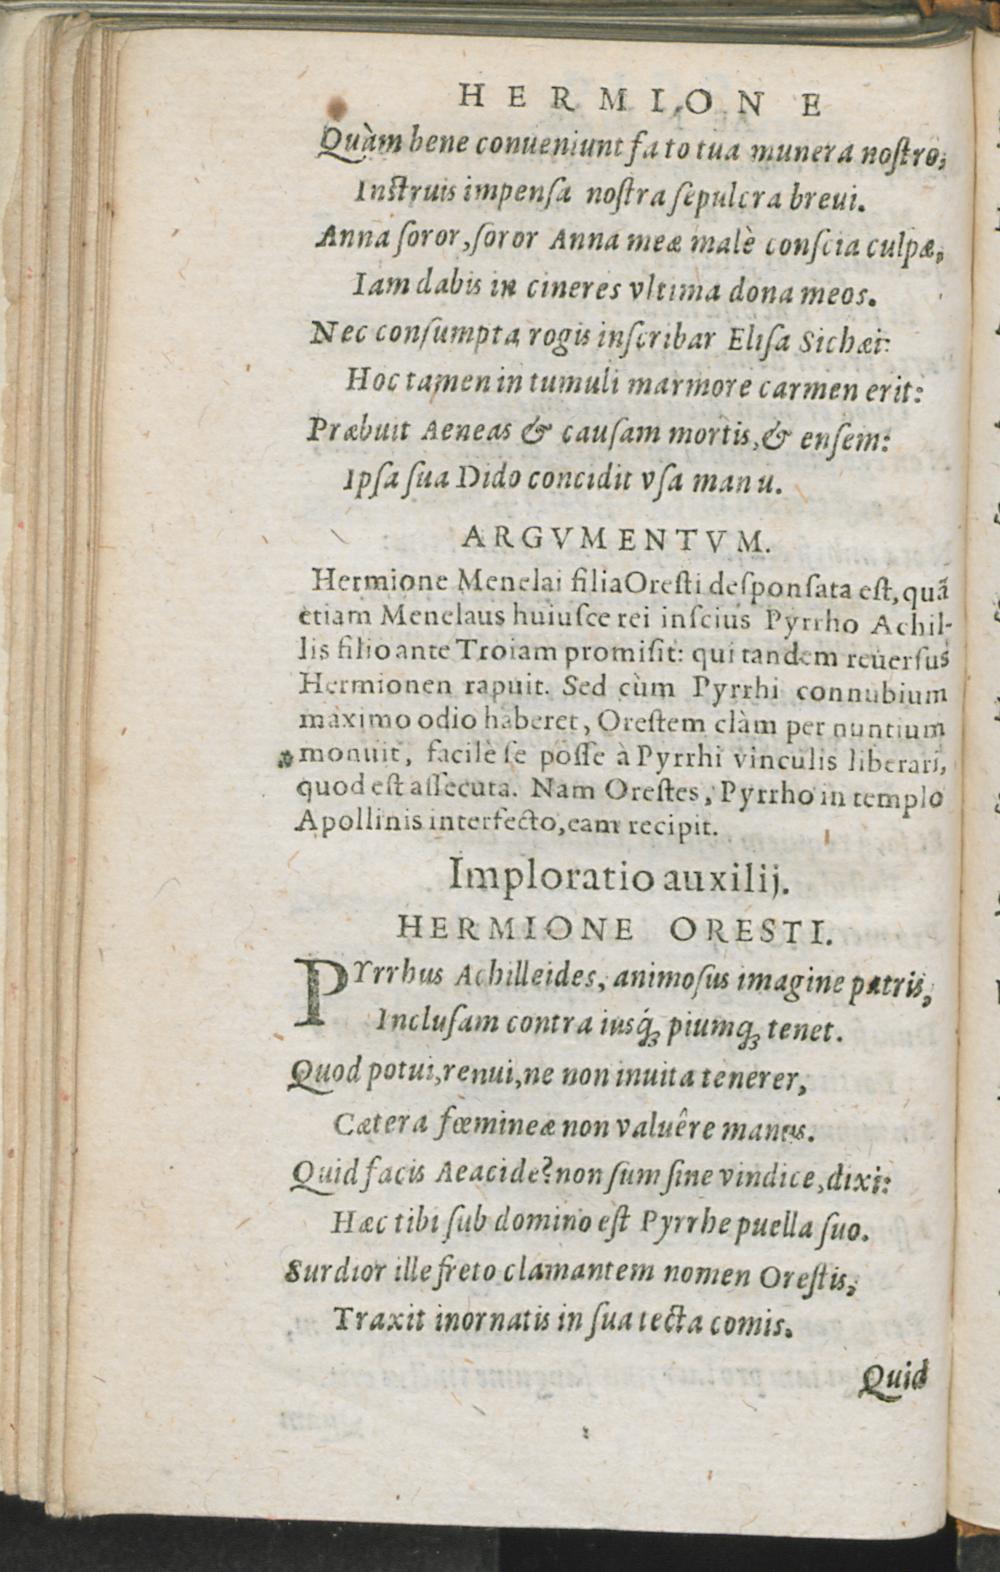 HERMIONE
Quàm bene conueniunt fato tua munera noſtro,
Inſtruis impenſa noſtra ſepulcra breui.
Anna ſoror, ſoror Anna meæ malè conſcia culpæ,
Iam dabis in cineres vltima dona meos.
Nec conſumpta rogis inſcribar Eliſa Sichæi:
Hoc tamen in tumuli marmore carmen erit:
Præbuit Aeneas & cauſam mortis, & enſem:
Ipſa ſua Dido concidit vſa manu.
ARGVMENTVM.
Hermione Menelai filia Oreſti deſponſata eſt, quã
etiam Menelaus huiuſce rei inſcius Pyrrho Achil-
lis filio ante Troiam promiſit: qui tandem reuerſus
Hermionen rapuit. Sed cùm Pyrrhi connubium
maximo odio haberet, Oreſtem clàm per nuntium
monuit, facilè ſe poſſe à Pyrrhi vinculis liberari,
quod eſt aſſecuta. Nam Oreſtes, Pyrrho in templo
Apollinis interfecto, eam recipit.
Imploratio auxilij.
HERMIONE ORESTI.
PYrrhus Achilleides, animoſus imagine patris,
Incluſam contra iusq́; piumq; tenet.
Quod potui, renui, ne non inuita tenerer,
Cætera fœmineæ non valuêre manus.
Quid facis Aeacide? non ſum ſine vindice, dixi:
Hæc tibi ſub domino eſt Pyrrhe puella ſuo.
Surdior ille freto clamantem nomen Oreſtis,
Traxit inornatis in ſua tecta comis.
Quid